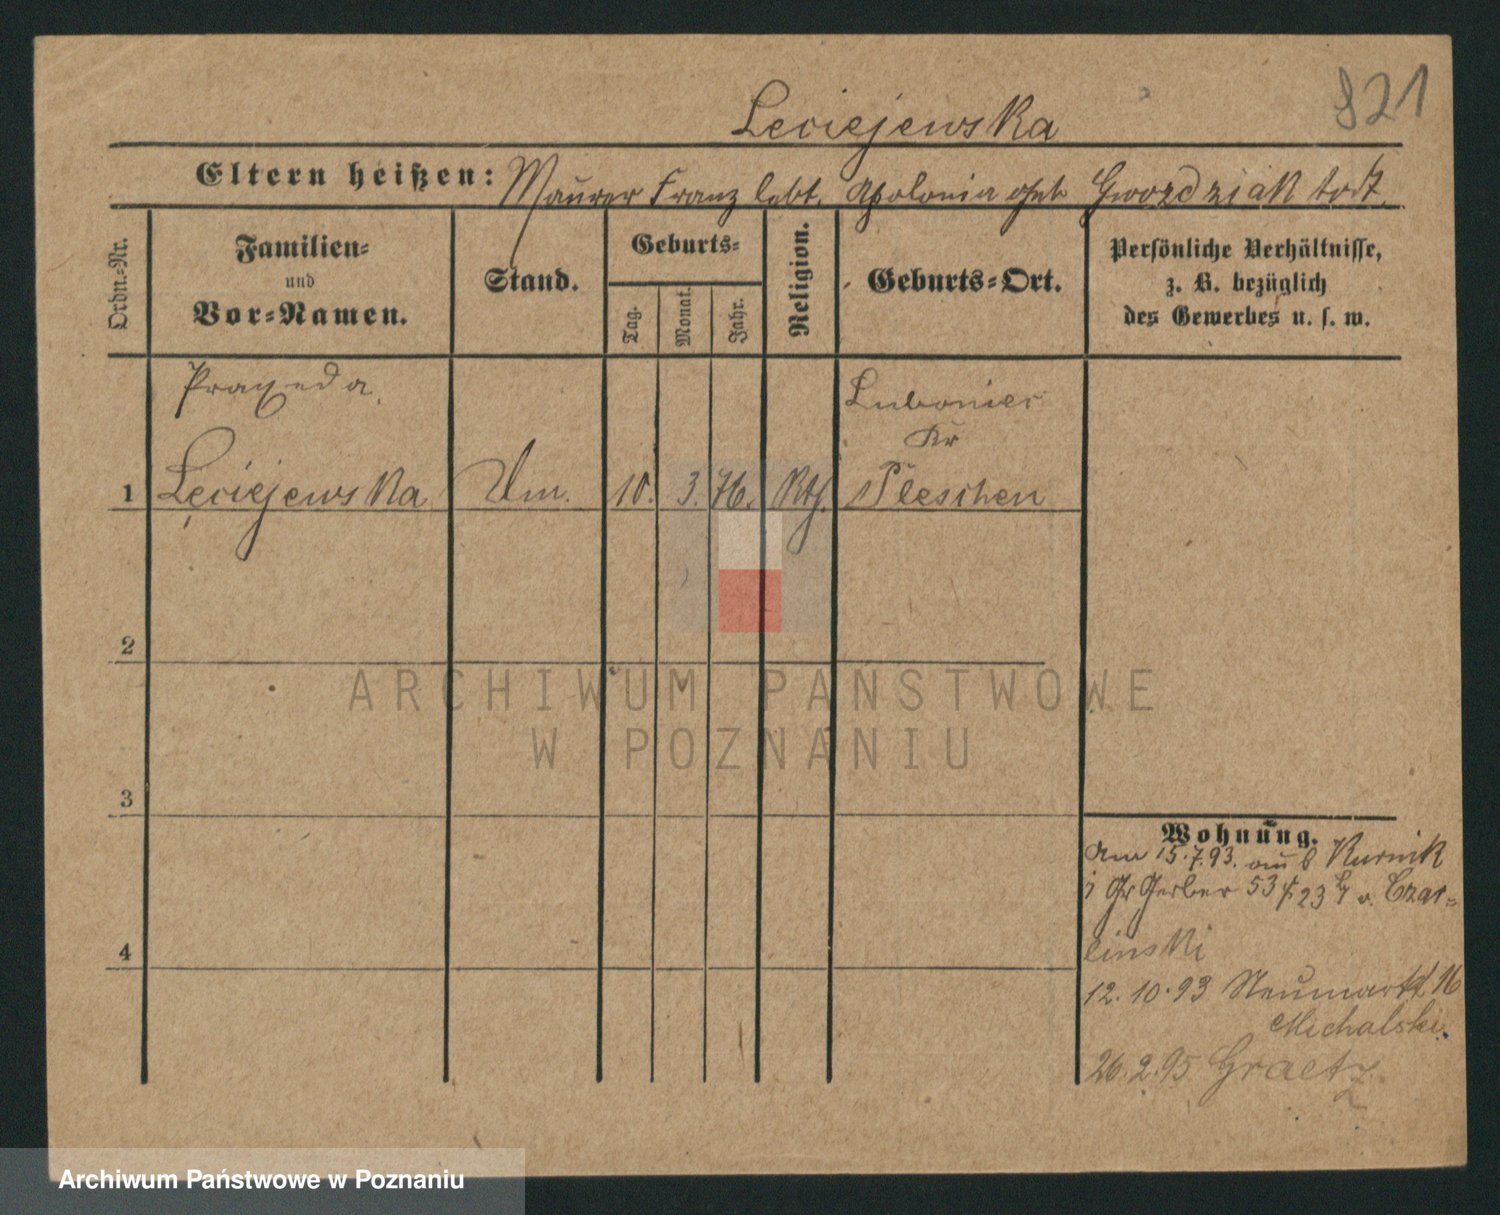 821
Leciejewska
Eltern heißen: Maurer Franz lebt. Apolonia geb Gwozdziak todt.
Ordn.-Nr.
Familien-
und
Vor-Namen.
Stand.
Geburts-
Tag.
Monat.
Jahr.
Religion.
Geburts-Ort.
Persönliche Verhältnisse,
z. B. bezüglich
des Gewerbes u. s. w.
Praxeda
Lubonier
Kr
1 Leciejewska Um. 10. 3. 76. Kth. Pleschen
2
ARCHIWUM PAŃSTWOWE
W POZNANIU
3
Wohnung.
Am 15.7.93. aus Kurnik
Gr Gerber 53 23 v. Czar-
linski
4
12.10.93 Neumarkt 16
Michalski.
26.2.95 Graetz
Archiwum Państwowe w Poznaniu